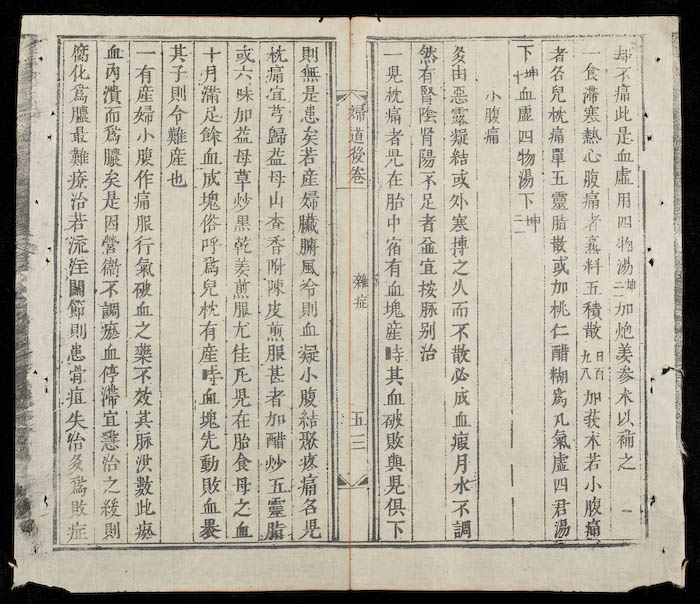 却不痛此是血虛用四物湯坤二加炮姜参末以補之 一
一食滞寒熱心腹痛者熟料五積散日百九八加莪末若小腹痛
者名兒枕痛單五靈脂散或加桃仁醋糊爲凡氣虛四君湯
下坤十血虛四物湯下坤二一
小腹痛
多由惡露凝結或外寒搏之久而不散必成血瘕月水不調
然有腎陰肾陽不足者並宜按脉别治
一兒枕痛者兒在胎中宿有血塊産時其血破敗與兒俱下
婦道後卷 雜症 五三
則無是患矣若産婦臟腑風冷則血凝小腹結聚疼痛名兒
枕痛宜芎歸益母山查香附陳皮煎服甚者加醋炒五靈脂
或六味加益母草炒黑乾姜煎服尤佳凡兒在胎食母之血
十月滿足餘血成塊俗呼爲兒枕有産時血塊先動敗血裹
其子則令難産也
一有産婦小腹作痛服行氣破血之藥不效其脉洪數此瘀
血内潰而爲膿矣是因營衛不調瘀血停滯宜急治之緩則
腐化爲膿最難療治若流注關節則患骨疽失治多爲敗症